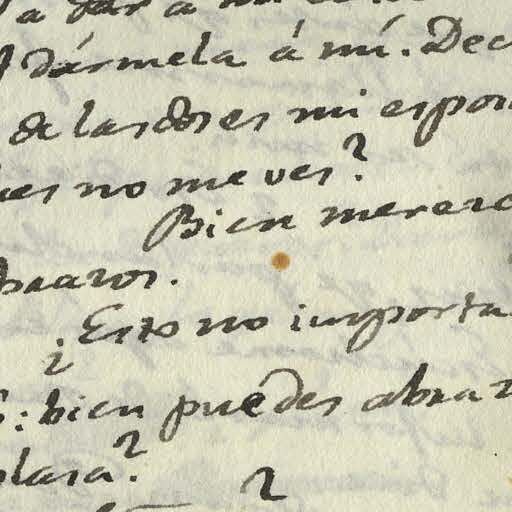 a dar a
dármela á mí. Dec
de las dos es mi espos
es no me ves?
Bien merezc
brazos.
¿Esto no importa
: bien puedes abraz
lara?
2